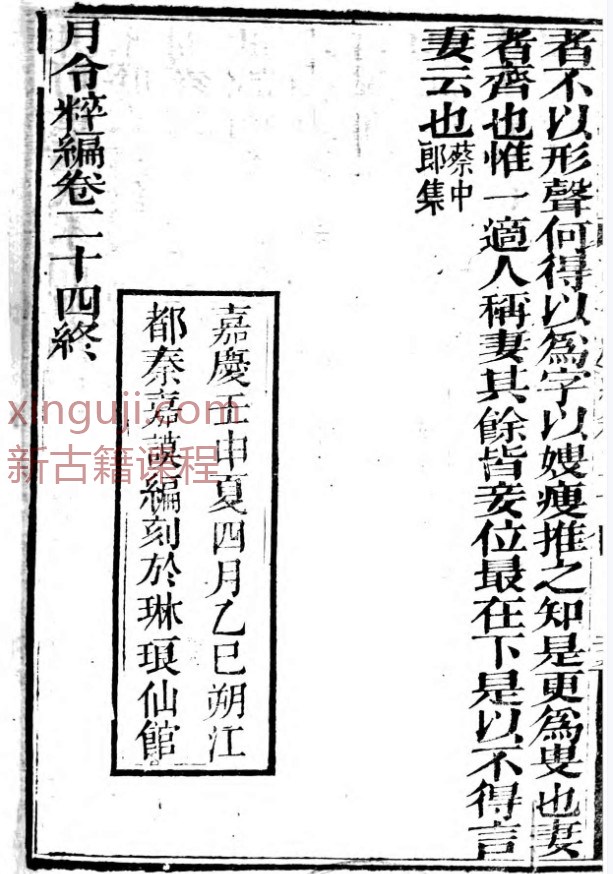 者不以形聲何得以為字以嫂瘦推之知是更為叟也妻
者齊也惟一適人稱妻其餘皆妾位最在下是以不得言
妻云也蔡中郎集
嘉慶壬申夏四月乙巳朔江
都秦嘉謨編刻於琳琅仙館
月令粹編卷二十四終
xinguji.com
新古籍课程